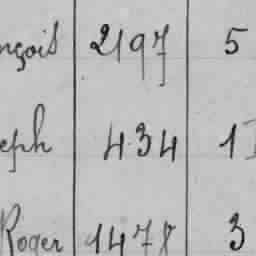 nçois 2197 5
eph 434 1
Roger 1478 3